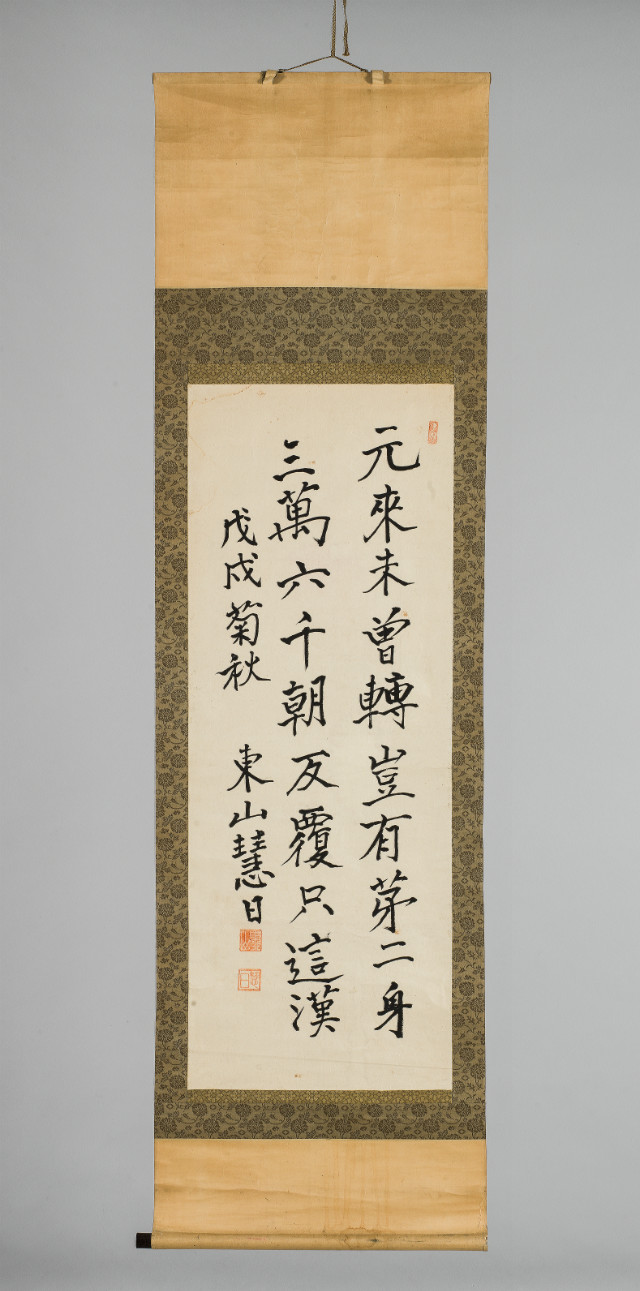 元來未曾轉豈有苐二身
三萬六千朝反覆只這漢
戊戌菊秋
東山慧日